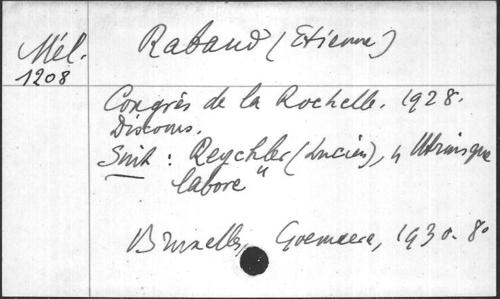 Mél.
1208
Rabaud (Etienne)
Congrès de la Rochelle. 1928.
Discours.
Suit : Reychler (Lucien), "Utriusque
labore"
Bruxelles, Goemaere, 1930. 8o